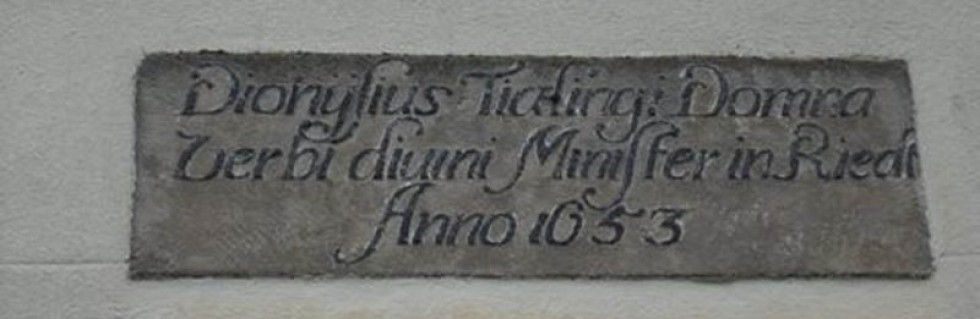 Dionyſius Tialingi Domna
Verbi diuini Miniſter in Riedt
Anno 1653